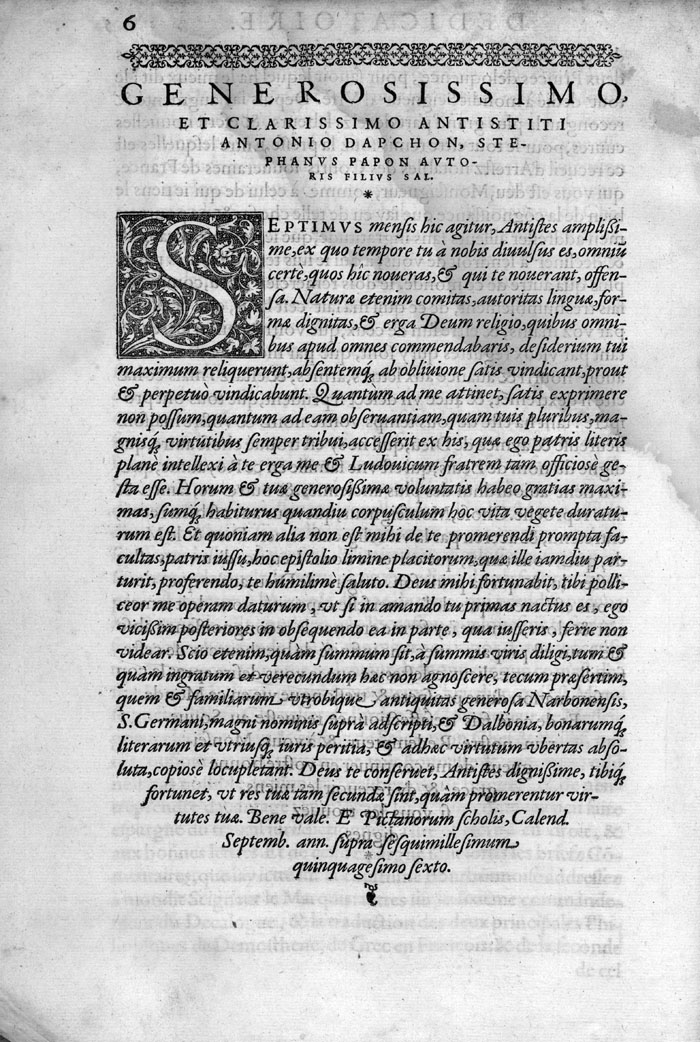 6
GENEROSISSIMO,
ET CLARISSIMO ANTISTITI
ANTONIO DAPCHON, STE-
PHANVS PAPON AVTO-
RIS FILIVS SAL.
*
SEPTIMVS mensis hic agitur, Antistes amplißi-
me, ex quo tempore tu à nobis diuulsus es, omniũ
certè, quos hîc noueras, & qui te nouerant, offen-
sa. Naturæ etenim comitas, autoritas linguæ, for-
mæ dignitas, & erga Deum religio, quibus omni-
bus apud omnes commendabaris, desiderium tui
maximum reliquerunt, absentemq́; ab obliuione satis vindicant, prout
& perpetuò vindicabunt. Quantum ad me attinet, satis exprimere
non possum, quantum ad eam obseruantiam, quam tuis pluribus, ma-
gnisq́; virtutibus semper tribui, accesserit ex his, quæ ego patris literis
planè intellexi à te erga me & Ludouicum fratrem tam officiose ge-
sta esse. Horum & tuæ generosißimæ voluntatis habeo gratias maxi-
mas, sumq́; habiturus quandiu corpusculum hoc vita vegete duratu-
rum est. Et quoniam alia non est mihi de te promerendi prompta fa-
cultas, patris iussu, hoc epistolio limine placitorum, quæ ille iamdiu par-
turit, proferendo, te humilimè saluto. Deus mihi fortunabit, tibi polli-
ceor me operam daturum, vt si in amando tu primas nactus es, ego
vicißim posteriores in obsequendo ea in parte, qua iusseris, ferre non
videar. Scio etenim, quàm summum sit, à summis viris diligi, tum &
quàm ingratum et verecundum hæc non agnoscere, tecum præsertim,
quem & familiarum vtrobique antiquitas generosa Narbonensis,
S. Germani, magni nominis supra adscripti, & Dalbonia, bonarumq́;
literarum et vtriusq́; iuris peritia, & adhæc virtutum vbertas abso-
luta, copiosè locupletant. Deus te conseruet, Antistes dignißime, tibiq́;
fortunet, vt res tuæ tam secundæ sint, quàm promerentur vir-
tutes tuæ. Bene vale. E Pictanorum scholis, Calend.
Septemb. ann. supra sesquimillesimum
quinquagesimo sexto.